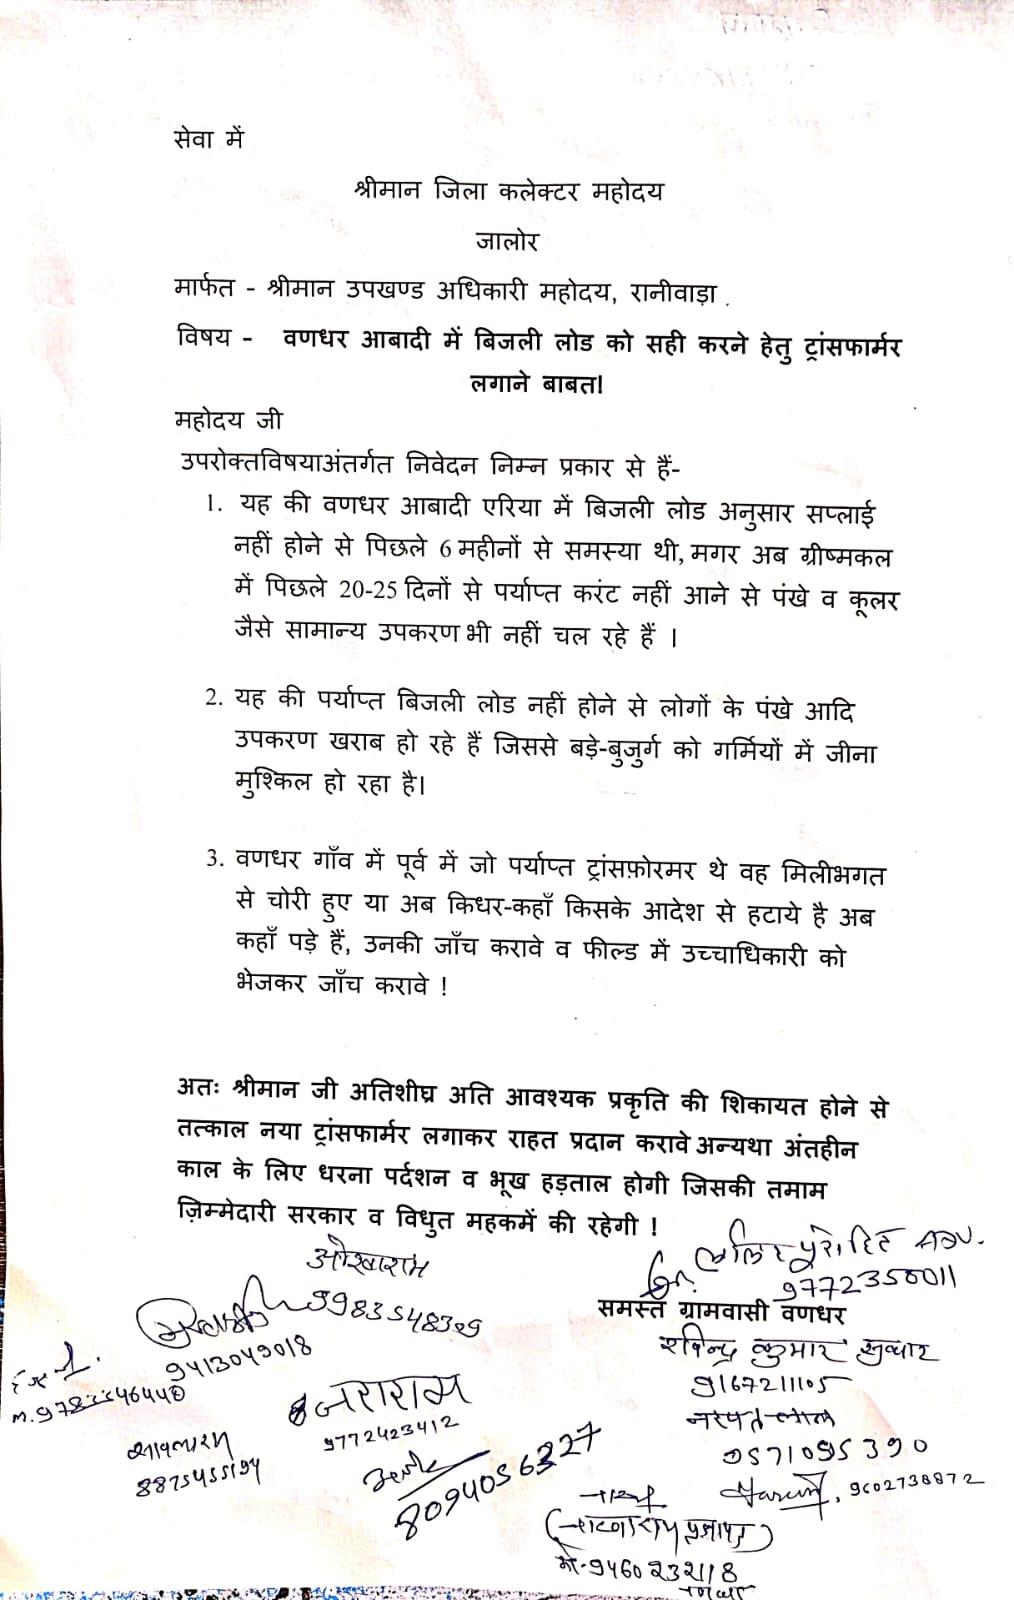 सेवा में
श्रीमान जिला कलेक्टर महोदय
जालोर
मार्फत - श्रीमान उपखण्ड अधिकारी महोदय, रानीवाड़ा .
विषय - वणधर आबादी में बिजली लोड को सही करने हेतु ट्रांसफार्मर
लगाने बाबत।
महोदय जी
उपरोक्तविषयाअंतर्गत निवेदन निम्न प्रकार से हैं-
1. यह की वणधर आबादी एरिया में बिजली लोड अनुसार सप्लाई
नहीं होने से पिछले 6 महीनों से समस्या थी, मगर अब ग्रीष्मकल
में पिछले 20-25 दिनों से पर्याप्त करंट नहीं आने से पंखे व कूलर
जैसे सामान्य उपकरण भी नहीं चल रहे हैं ।
2. यह की पर्याप्त बिजली लोड नहीं होने से लोगों के पंखे आदि
उपकरण खराब हो रहे हैं जिससे बड़े-बुजुर्ग को गर्मियों में जीना
मुश्किल हो रहा है।
3. वणधर गाँव में पूर्व में जो पर्याप्त ट्रांसफ़ोरमर थे वह मिलीभगत
से चोरी हुए या अब किधर-कहाँ किसके आदेश से हटाये है अब
कहाँ पड़े हैं, उनकी जाँच करावे व फील्ड में उच्चाधिकारी को
भेजकर जाँच करावे !
अतः श्रीमान जी अतिशीघ्र अति आवश्यक प्रकृति की शिकायत होने से
तत्काल नया ट्रांसफार्मर लगाकर राहत प्रदान करावे अन्यथा अंतहीन
काल के लिए धरना पर्दशन व भूख हड़ताल होगी जिसकी तमाम
ज़िम्मेदारी सरकार व विधुत महकमें की रहेगी !
ललित पुरोहित ADV.
9772350011
समस्त ग्रामवासी वणधर
ओखाराम
9983548329
9413049018
रविन्द्र कुमार सुथार
9167211105
जराराम
9772423412
नरपतलाल
9571095390
8875455194
8094056327
9602738872
मो-9460232118